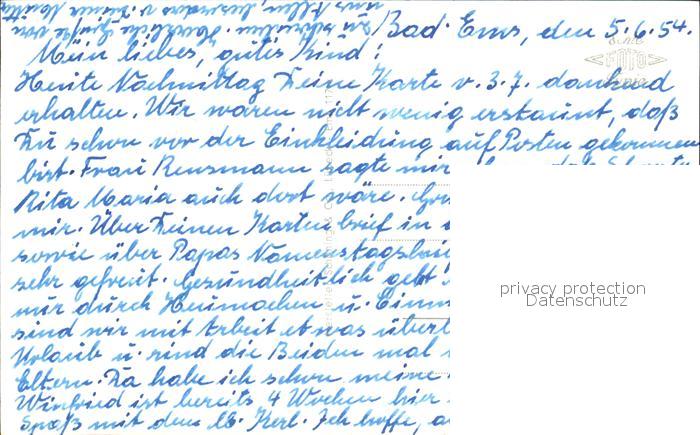 Bad Ems, den 5.6.54.
Mein liebes, gutes Kind!
Heute Nachmittag Deine Karte v. 3.7. dankend
erhalten. Wir waren nicht wenig erstaunt, daß
Du schon vor der Einkleidung auf Posten gekommen
bist. Frau Rensmann sagte mir
Rita Maria auch dort wäre.
mir. Über Deinen Kartenbrief in
sowie über Papas Namenstagsbrief
sehr gefreut. Gesundheitlich geht
nur durch Heumachen u.
sind wir mit Arbeit etwas überl
Urlaub u. sind die Beiden mal
Eltern. Da habe ich schon meine
Winfried ist bereits 4 Wochen hier
Spaß mit dem Kerl. Ich hoffe,
privacy protection
Datenschutz
FOTO